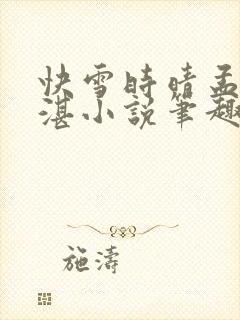 快雪時晴孟
湛小說筆趣
施濤